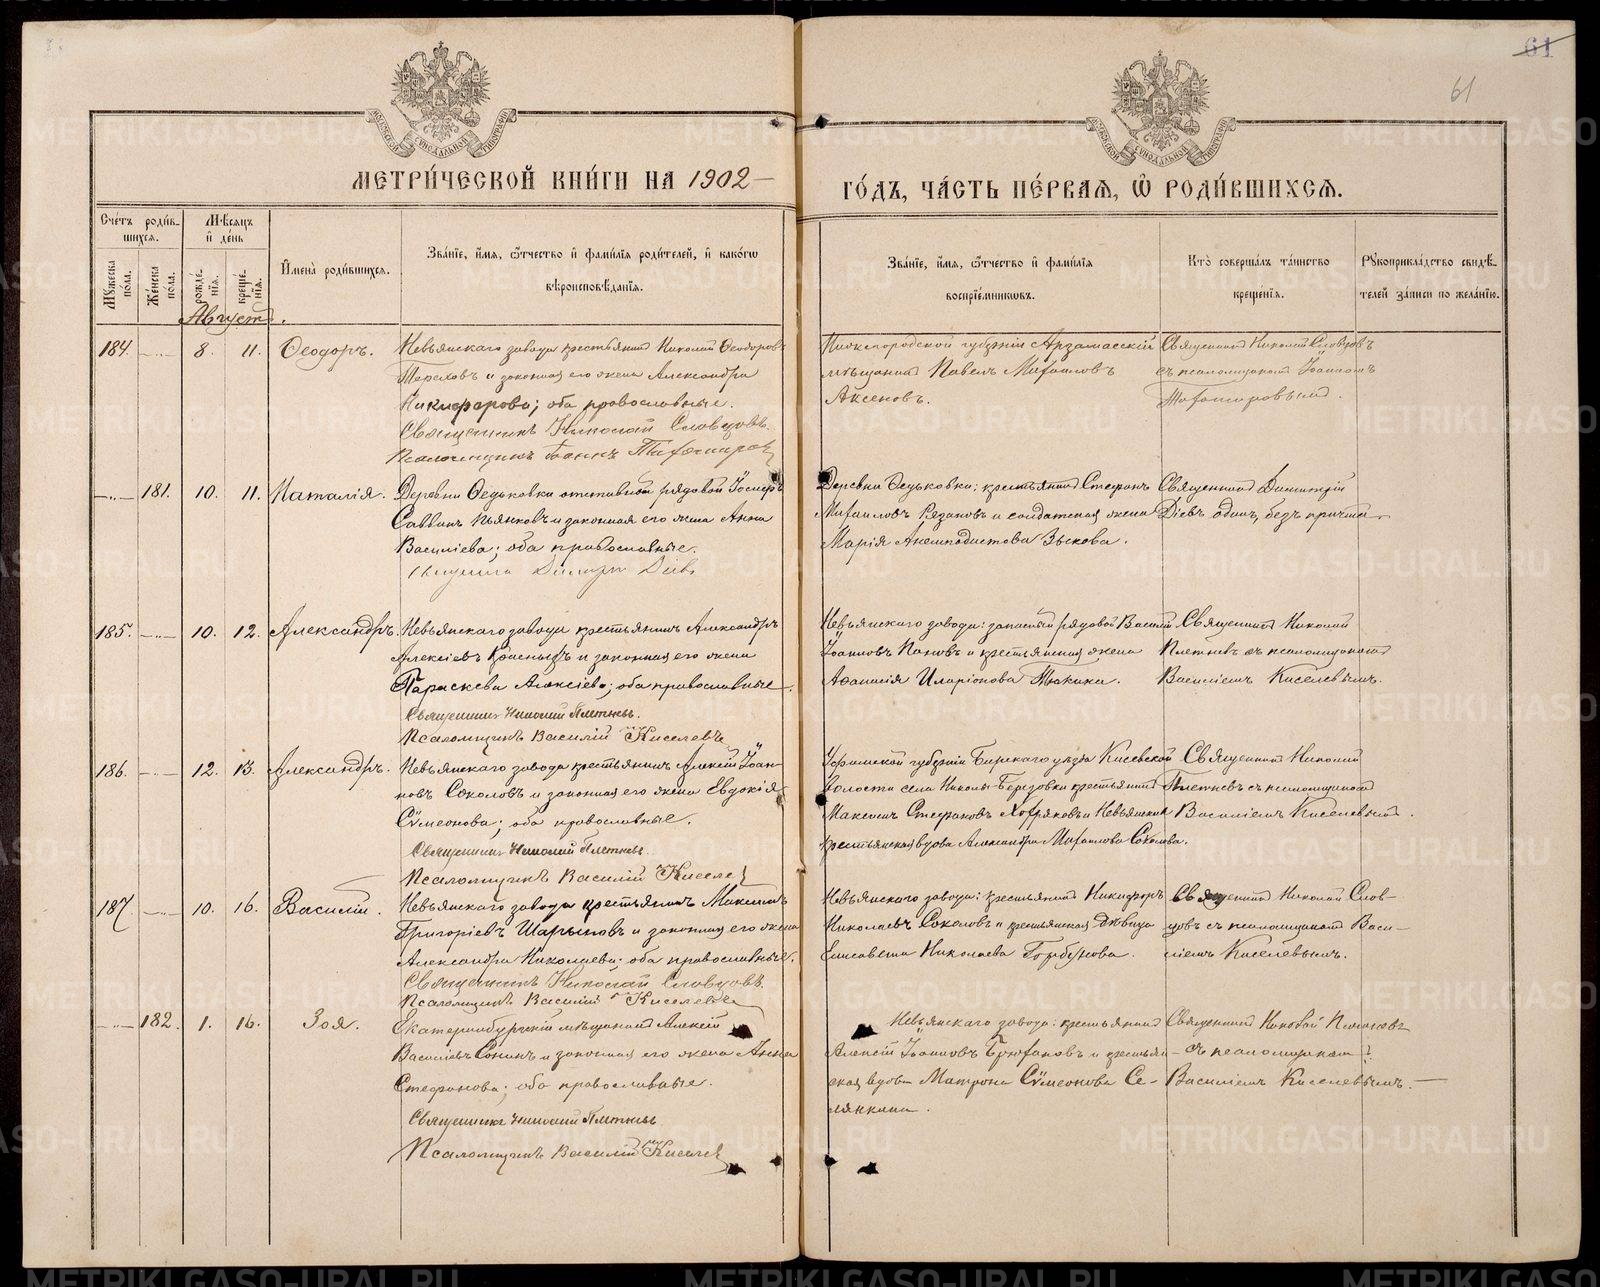 61
61
МОСКОВСКОЙ СѴНОДАЛЬНОЙ ТИПОГРАФІИ
МОСКОВСКОЙ СѴНОДАЛЬНОЙ ТИПОГРАФІИ
МЕТРИ́ЧЕСКОЙ КНИ́ГИ НА 1902
ГО́ДЪ, ЧА́СТЬ ПЕ́РВАЯ, Ѡ҆ РОДИ́ВШИХСЯ.
Сче́тъ роди́в-
шихся.
Мужеска по́ла.
Же́нска по́ла.
Мѣ́сяцъ и҆ де́нь
рожде́-
нїя.
креще́-
нїя.
И҆мена̀ роди́вшихся.
Зва́нїе, и҆́мя, ѻ҆́тчество и҆ фами́лїя роди́телей, и҆ како́гѡ
вѣроисповѣ́данїя.
Зва́нїе, и҆́мя, ѻ҆́тчество и҆ фами́лїя
воспрїе́мниковъ.
Кто̀ соверша́лъ та́инство
креще́нїя.
Рукоприкла́дство свидѣ́-
телей за́писи по жела́нїю.
Августъ.
184. -„- 8. 11. Ѳеодоръ.
Невьянскаго завода крестьянинъ Николай Ѳеодоровъ
Тереховъ и законная его жена Александра
Никифорова; оба православные.
Священникъ Николай Словцовъ.
Псаломщикъ Іоаннъ
Нижегородской губерніи Арзамасскій
мѣщанинъ Павелъ Михаиловъ
Аксеновъ.
Священникъ Николай Словцовъ
съ псаломщикомъ Іоанномъ
-„- 181. 10. 11. Наталія.
Деревни Ѳедьковки отставной рядовой Іосифъ
Саввинъ Пьянковъ и законная его жена Анна
Василіева; оба православные.
Священникъ Димитрій Діевъ
Деревни Ѳедьковки: крестьянинъ Стефанъ
Михаиловъ Рязановъ и солдатская жена
Марія Анемподистова Зыкова.
Священникъ Димитрій
Діевъ одинъ, безъ причта
185. -„- 10. 12. Александръ.
Невьянскаго завода крестьянинъ Александръ
Алексіевъ и законная его жена
Параскева Алексіева; оба православные.
Священникъ Николай Плетневъ.
Псаломщикъ Василій Киселевъ
Невьянскаго завода: запасный рядовой Василій
Іоанновъ Пановъ и крестьянская жена
Аѳанасія Иларіонова
Священникъ Николай
Плетневъ съ псаломщикомъ
Василіемъ Киселевымъ.
186. -„- 12. 13. Александръ.
Невьянскаго завода крестьянинъ Алексій Іоан-
новъ Соколовъ и законная его жена Евдокія
Сѵмеонова; оба православные.
Священникъ Николай Плетневъ.
Псаломщикъ Василій Киселев
Уфимской губерніи Бирскаго уѣзда
волости села Николо-Березовки крестьянинъ
Максимъ Стефановъ Хохряковъ и Невьянская
крестьянская вдова Александра Михаилова Соколова.
Священникъ Николай
Плетневъ съ псаломщикомъ
Василіемъ Киселевымъ.
187. -„- 10. 16. Василій.
Невьянскаго завода крестьянинъ Максимъ
Григоріевъ Шарыповъ и законная его жена
Александра Николаева; оба православные.
Священникъ Николай Словцовъ.
Псаломщикъ Василій Киселевъ
Невьянскаго завода: крестьянинъ Никифоръ
Николаевъ Соколовъ и крестьянская дѣвица
Елисавета Николаева Горбунова.
Священникъ Николай Слов-
цовъ съ псаломщикомъ Васи-
ліемъ Киселевымъ.
-„- 182. 1. 16. Зоя.
Екатеринбургскій мѣщанинъ Алексій
Василіевъ Сонинъ и законная его жена Анна
Стефанова; оба православные.
Священникъ Николай Плетневъ
Псаломщикъ Василій Киселев
Невьянскаго завода: крестьянинъ
Алексій Іоанновъ Брюхановъ и крестьян-
ская вдова Матрона Сѵмеонова Се-
лянкина.
Священникъ Николай Плетневъ
съ псаломщикомъ
Василіемъ Киселевымъ.
METRIKI.GASO-URAL.RU